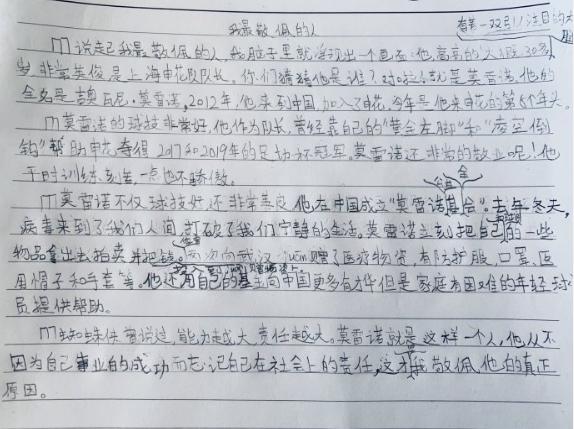 我最敬佩的人
有着一双引人注目的大
说起我最敬佩的人,我脑子里就浮现出一个画面:他,高高的个大概30多
岁,非常英俊是上海申花队队长。你们猜猜他是谁?对啦!就是莫雷诺,他的
全名是乔瓦尼·莫雷诺,2012年,他来到中国加入了申花,今年是他来申花的第 个年头。
莫雷诺的球技非常好,他作为队长,曾经靠自己的“黄金左脚”和“凌空倒
钩”帮助申花夺得2017和2019年的足协杯冠军。莫雷诺还非常的敬业呢!他
平时训练刻苦,一点也不骄傲。
莫雷诺不仅球技好,还非常善良 他在中国成立“莫雷诺公益基金会”。去年冬天,
病毒来到了我们人间,打破了我们宁静的生活。莫雷诺立刻把自己的一些
物品拿出去拍卖并把钱。两次向武汉juān赠了医疗物资,有防护服、口罩、医
用帽子和手套等。他还用自己的基金向中国更多有才华但是家庭有困难的年轻球
员提供帮助。
蜘蛛侠曾说过,能力越大责任越大。莫雷诺就是这样一个人,他从不
因为自己事业的成功而忘记自己在社会上的责任,这才我敬佩他的真正
原因。